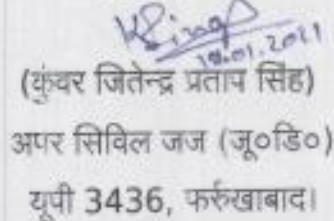 18.01.2021
(कुंवर जितेन्द्र प्रताप सिंह)
अपर सिविल जज (जू०डि०)
यूपी 3436, फर्रुखाबाद।